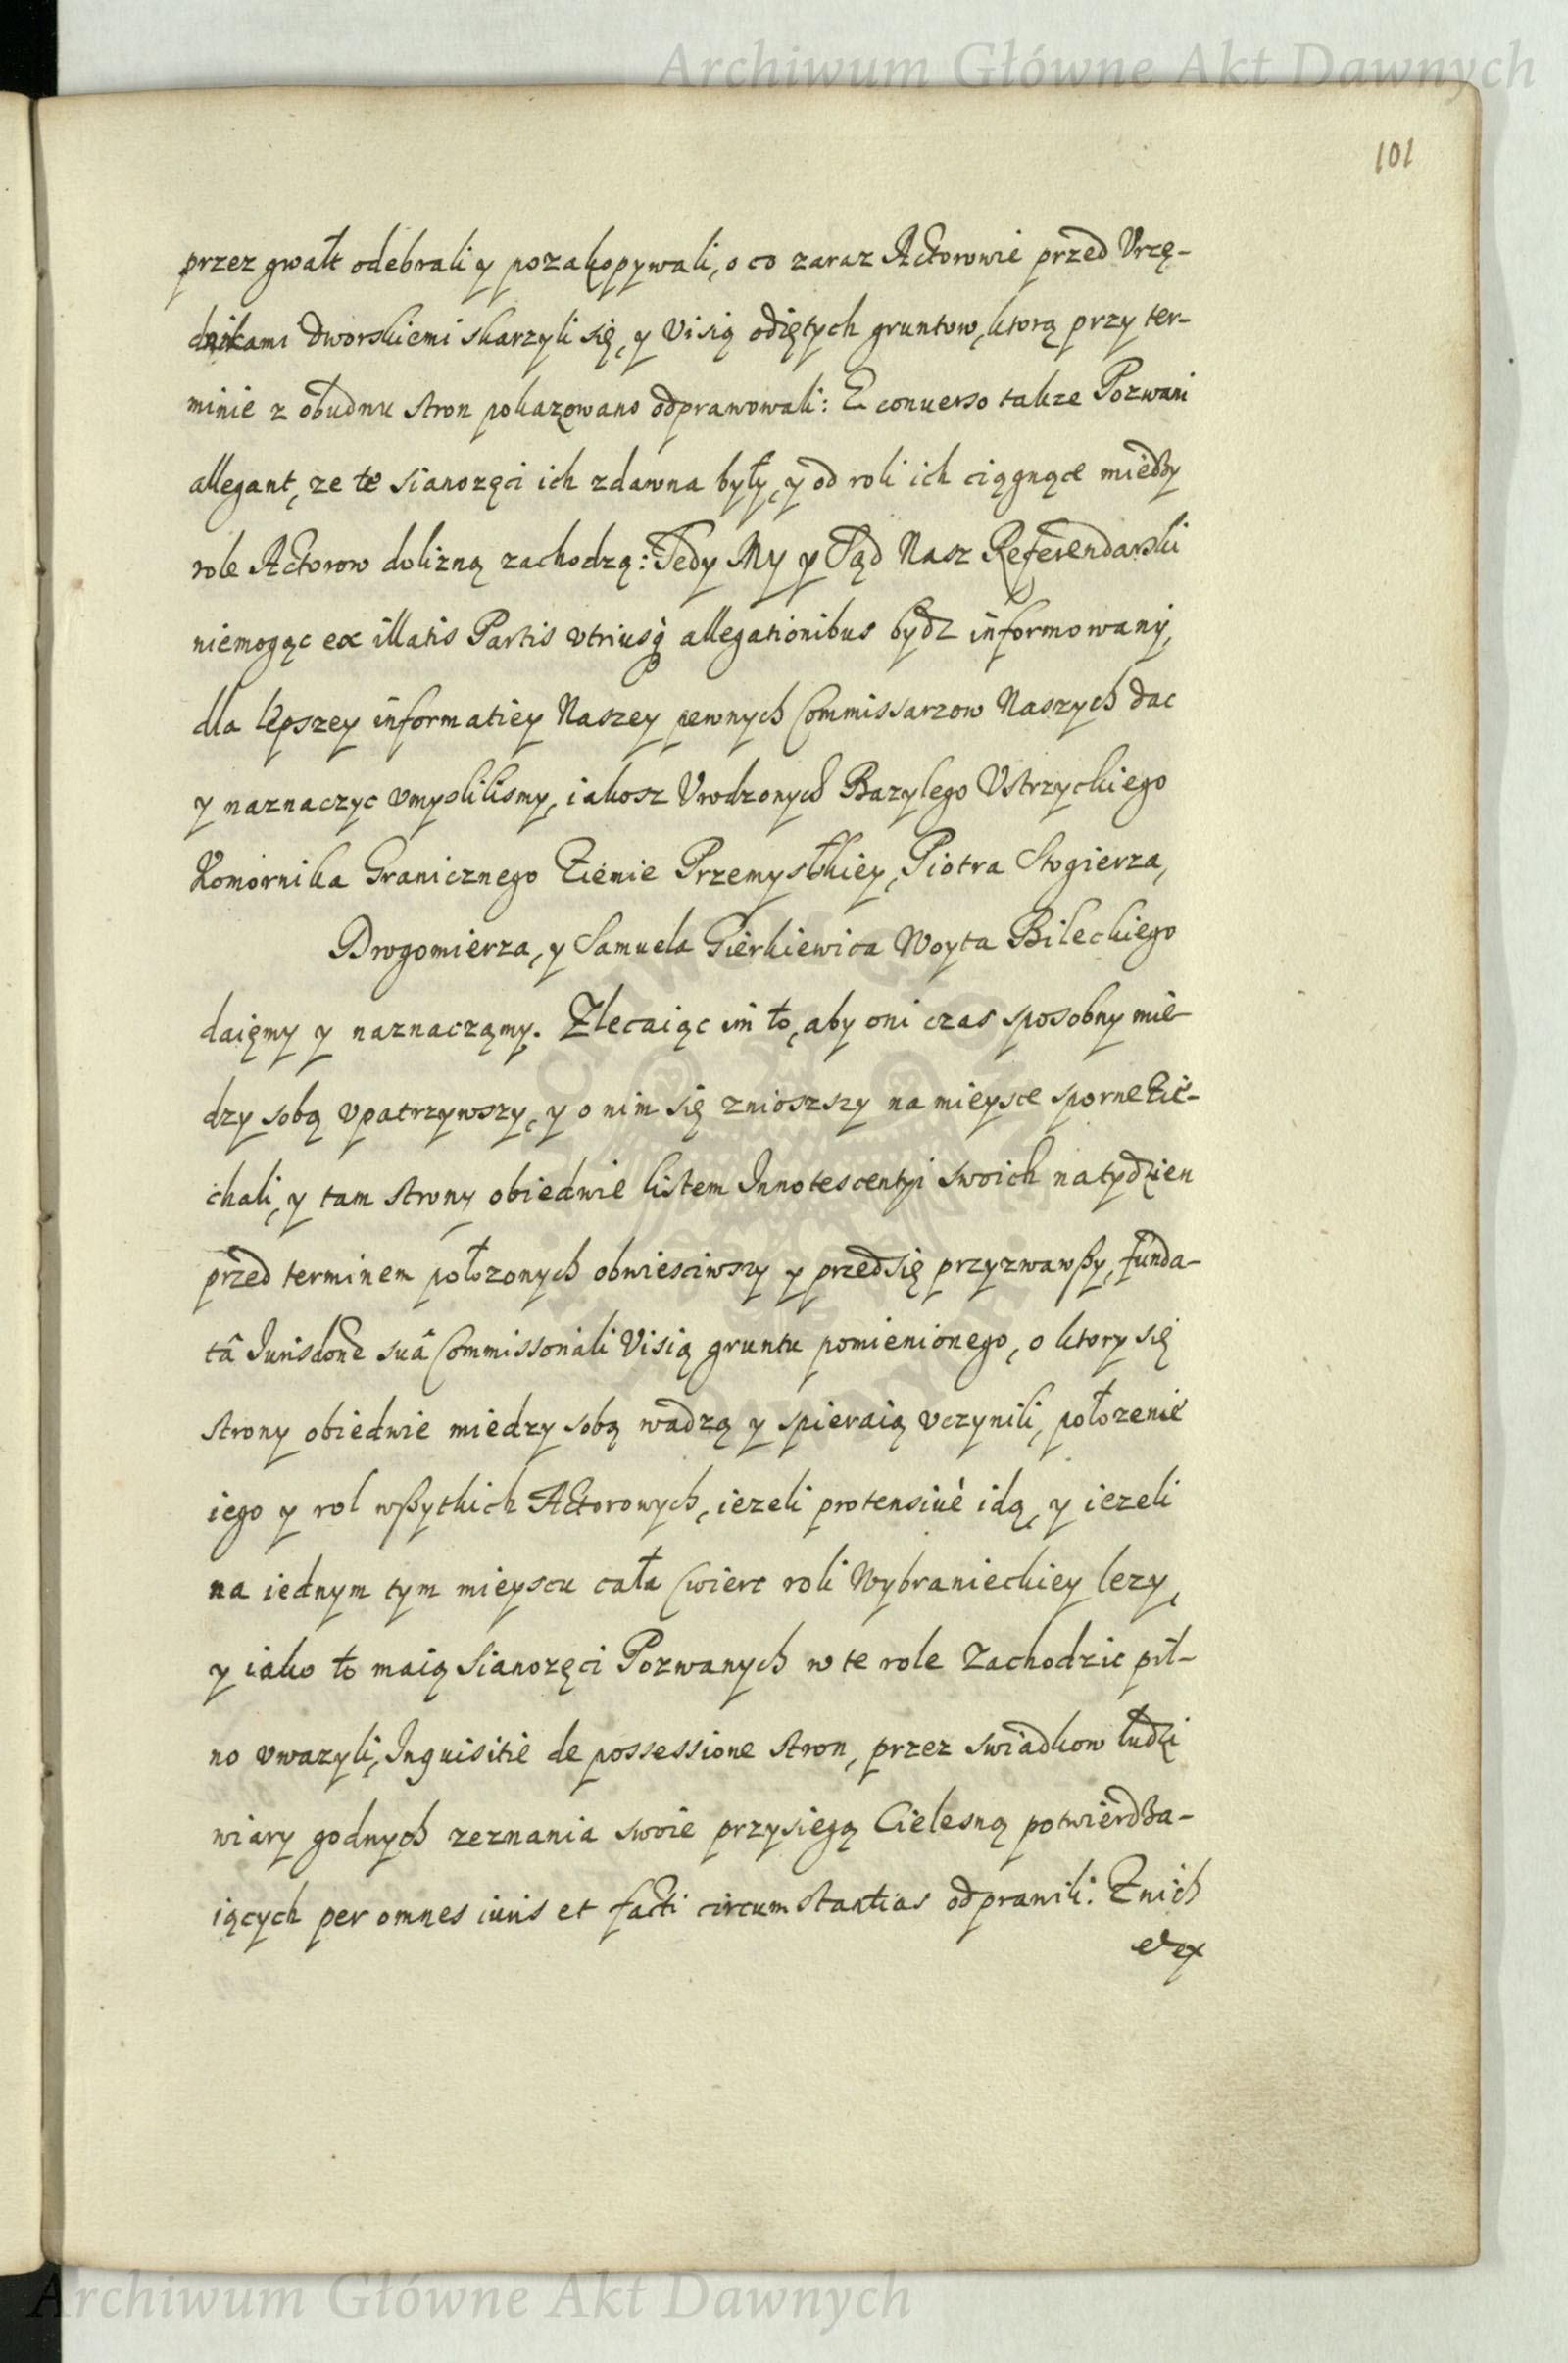 Archiwum Główne Akt Dawnych
101
przez gwałt odebrali y pozakopywali, o co zaraz Actorowie przed Vrzę-
dnikami Dworskiemi skarzyli się, y Visią odiętych gruntow, ktorą przy ter-
minie z obudnu stron pokazowano odprawowali: E conuerso takze Pozwani
allegant, ze te sianozęci ich zdawna były, y od roli ich ciągnące miedzy
role Actorow dolizną zachodzą: Tedy My y Sąd Nasz Referendarski
niemogąc ex illatis Partis vtriusq allegationibus bydz informowany,
dla lepszey informatiey Naszey pewnych Commissarzow Naszych dac
y naznaczyc vmyslilismy, iakosz Vrodzonych Bazylego Vstrzyckiego
Komornika Granicznego Ziemie Przemyskkiey, Piotra Stogierza,
Drogomierza, y Samuela Gierkiewica Woyta Bileckiego
daięmy y naznacząmy. Zlecaiąc im to, aby oni czas sposobny mie-
dzy sobą vpatrzywszy, y o nim się znioszszy na mieysce sporne Zie-
chali, y tam strony obiedwie listem Innotescentyi swoich na tydzien
przed terminem połozonych obwiesciwszy y przedsię przyzwawszy, funda-
tâ Iurisdone suâ Commissoriali Visią gruntu pomienionego, o ktory się
strony obiedwie miedzy sobą wadzą y spieraią vczynili, połozenie
iego y rol wszytkich Actorowych, iezeli protensiuè idą, y iezeli
na iednym tym mieyscu cała Cwierc roli Wybranieckiey lezy,
y iako to maią Sianozęci Pozwanych w te role Zachodzic pil-
no vwazyli, Inquisitie de possessione stron, przez swiadkow ludzi
wiary godnych zeznania swoie przysiegą Cielesną potwierdza-
iących per omnes iuris et facti circumstantias odprawili. Z nich
et ex
Archiwum Główne Akt Dawnych